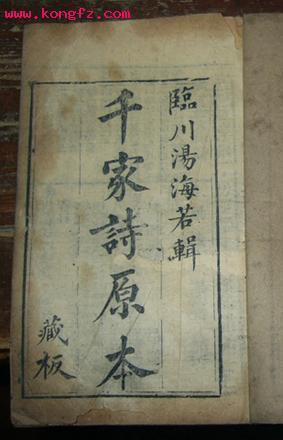 www.kongfz.com
臨川湯海若輯
千家詩原本
藏板